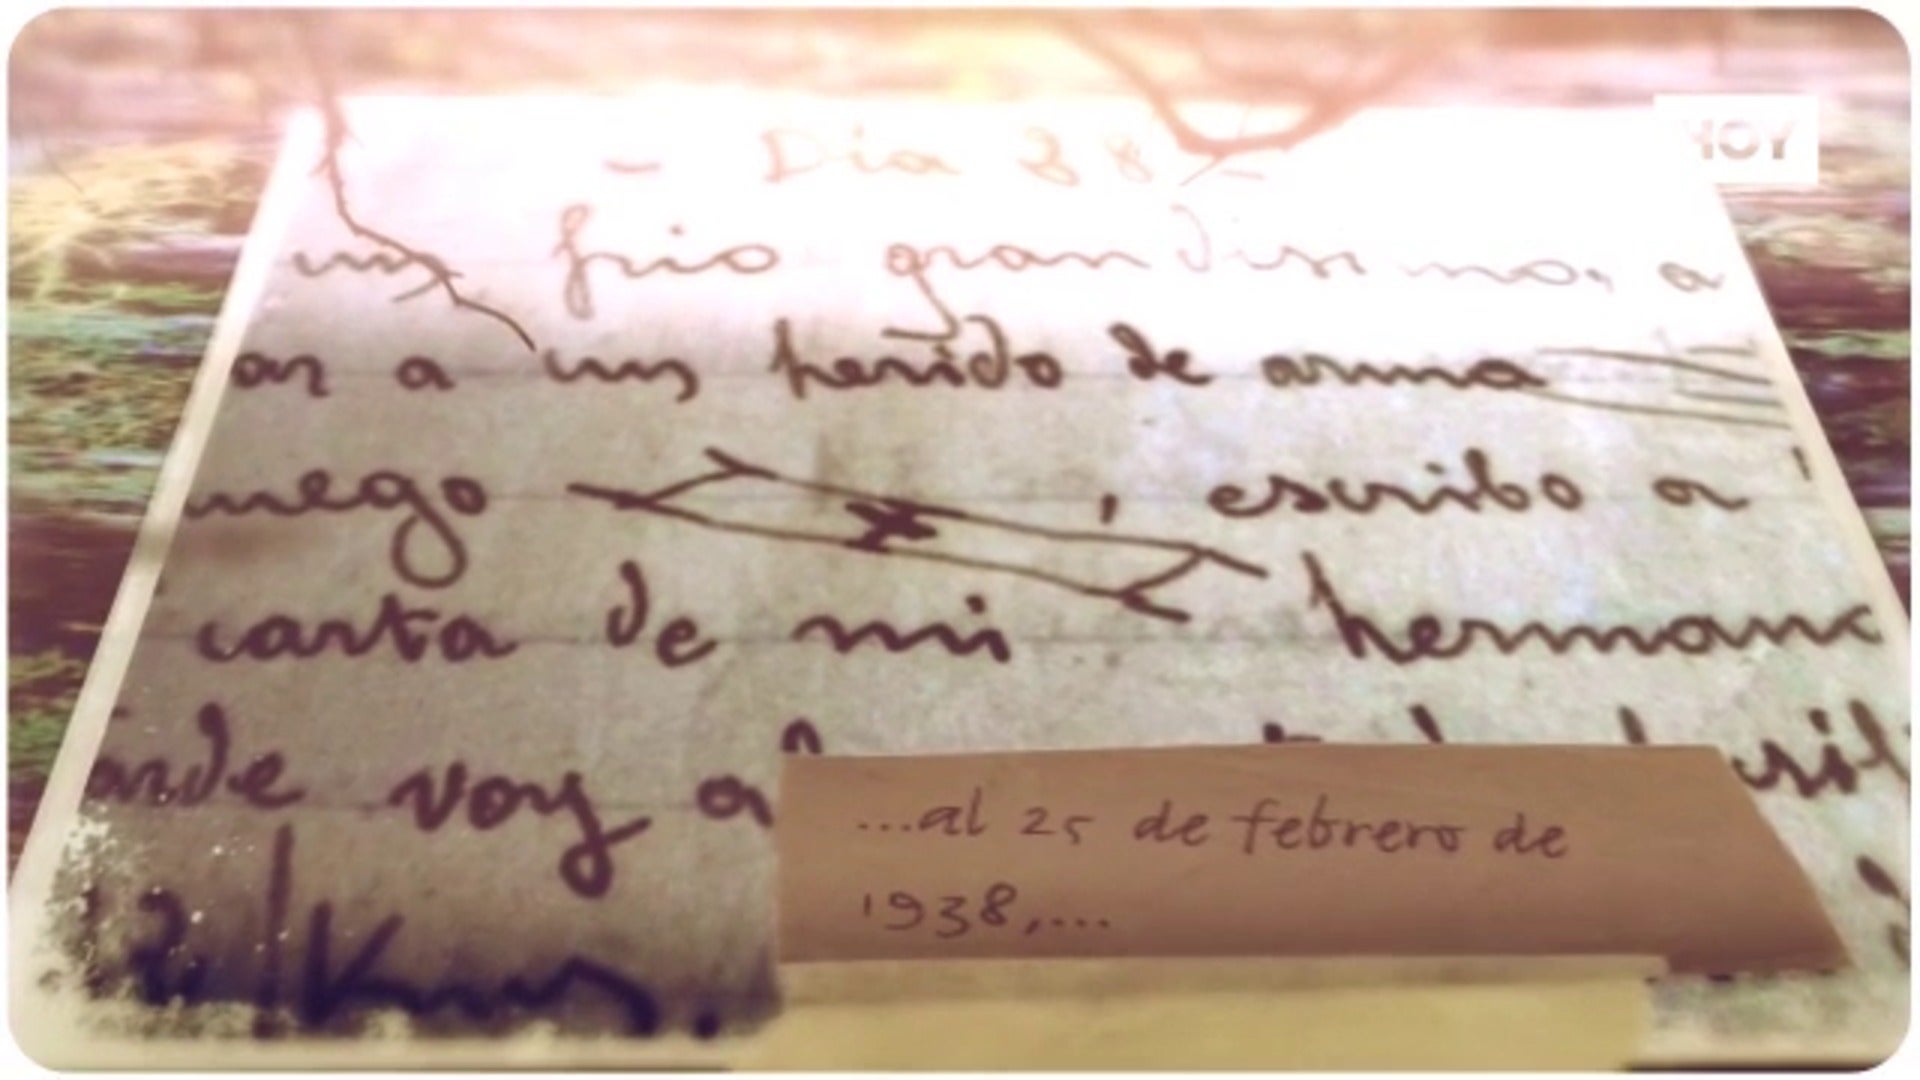 HOY
- Dia 28 -
un frio grandisimo, a
ar a un herido de arma
uego , escribo a
carta de mi herman
arde voy a
2 Km.
...al 25 de febrero de
1938,....